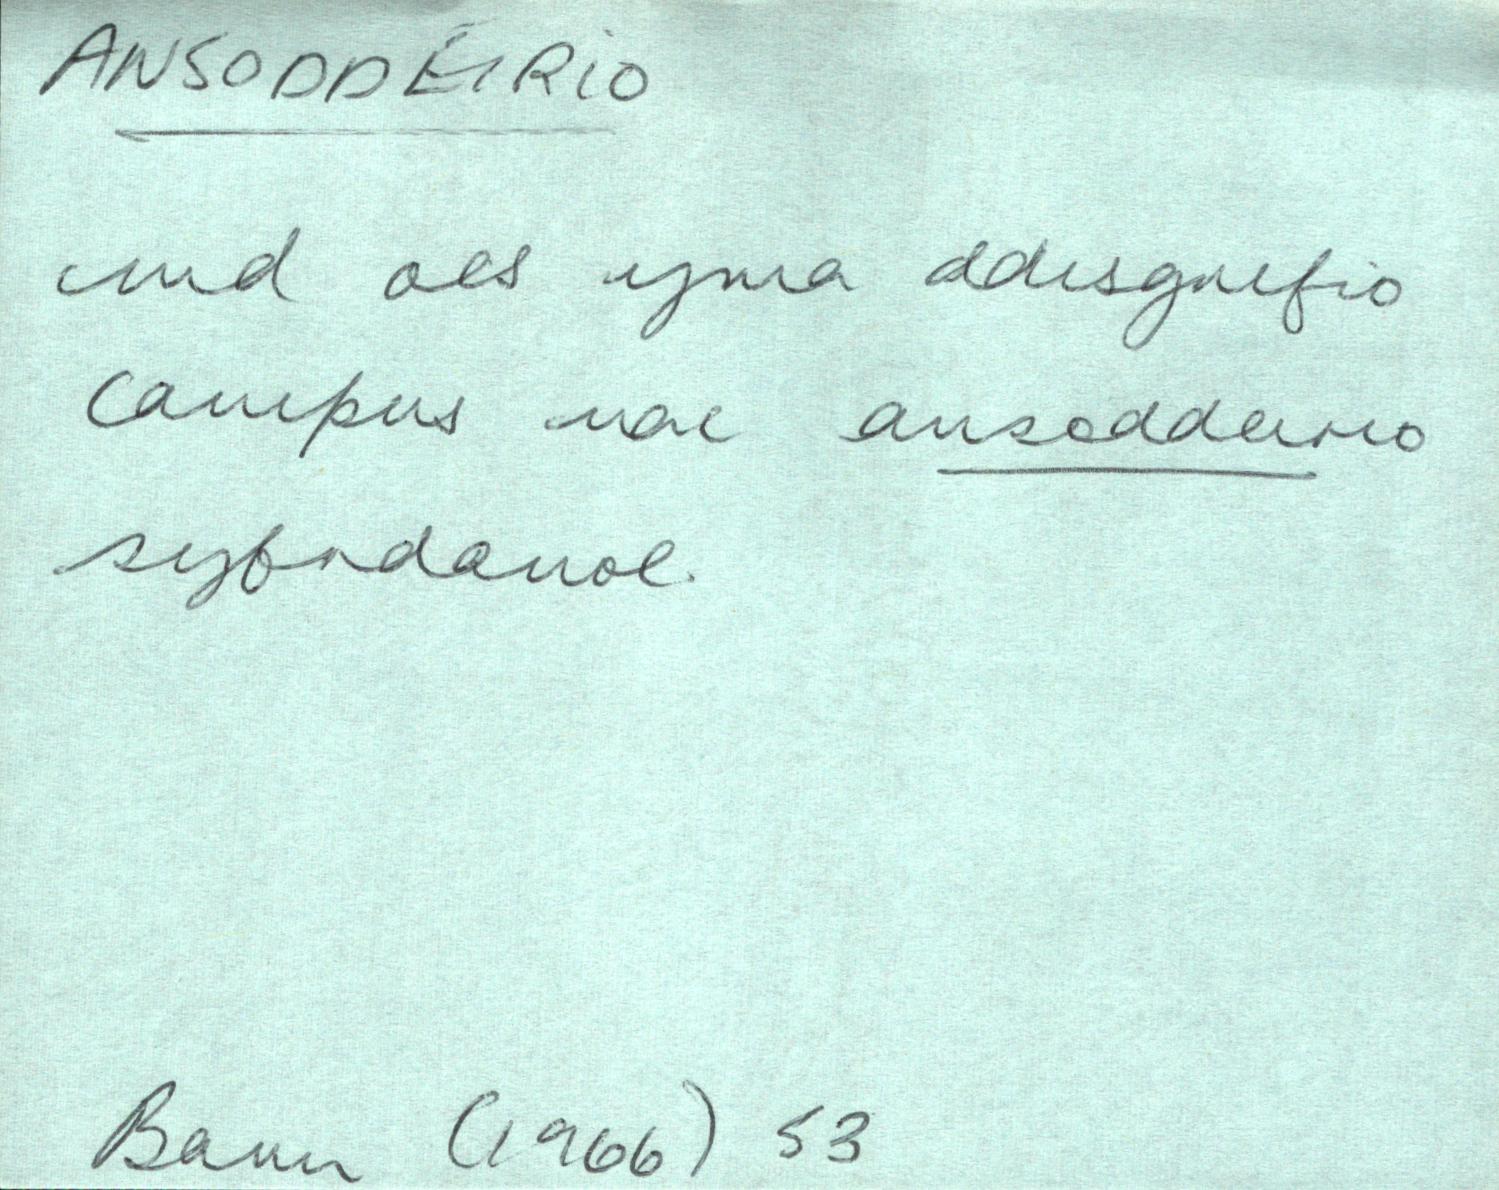 ANSODDEIRIO
nid oes yma ddisgrifio
campus nac ansoddeirio
syfrdanol.
Barn (1966) 53